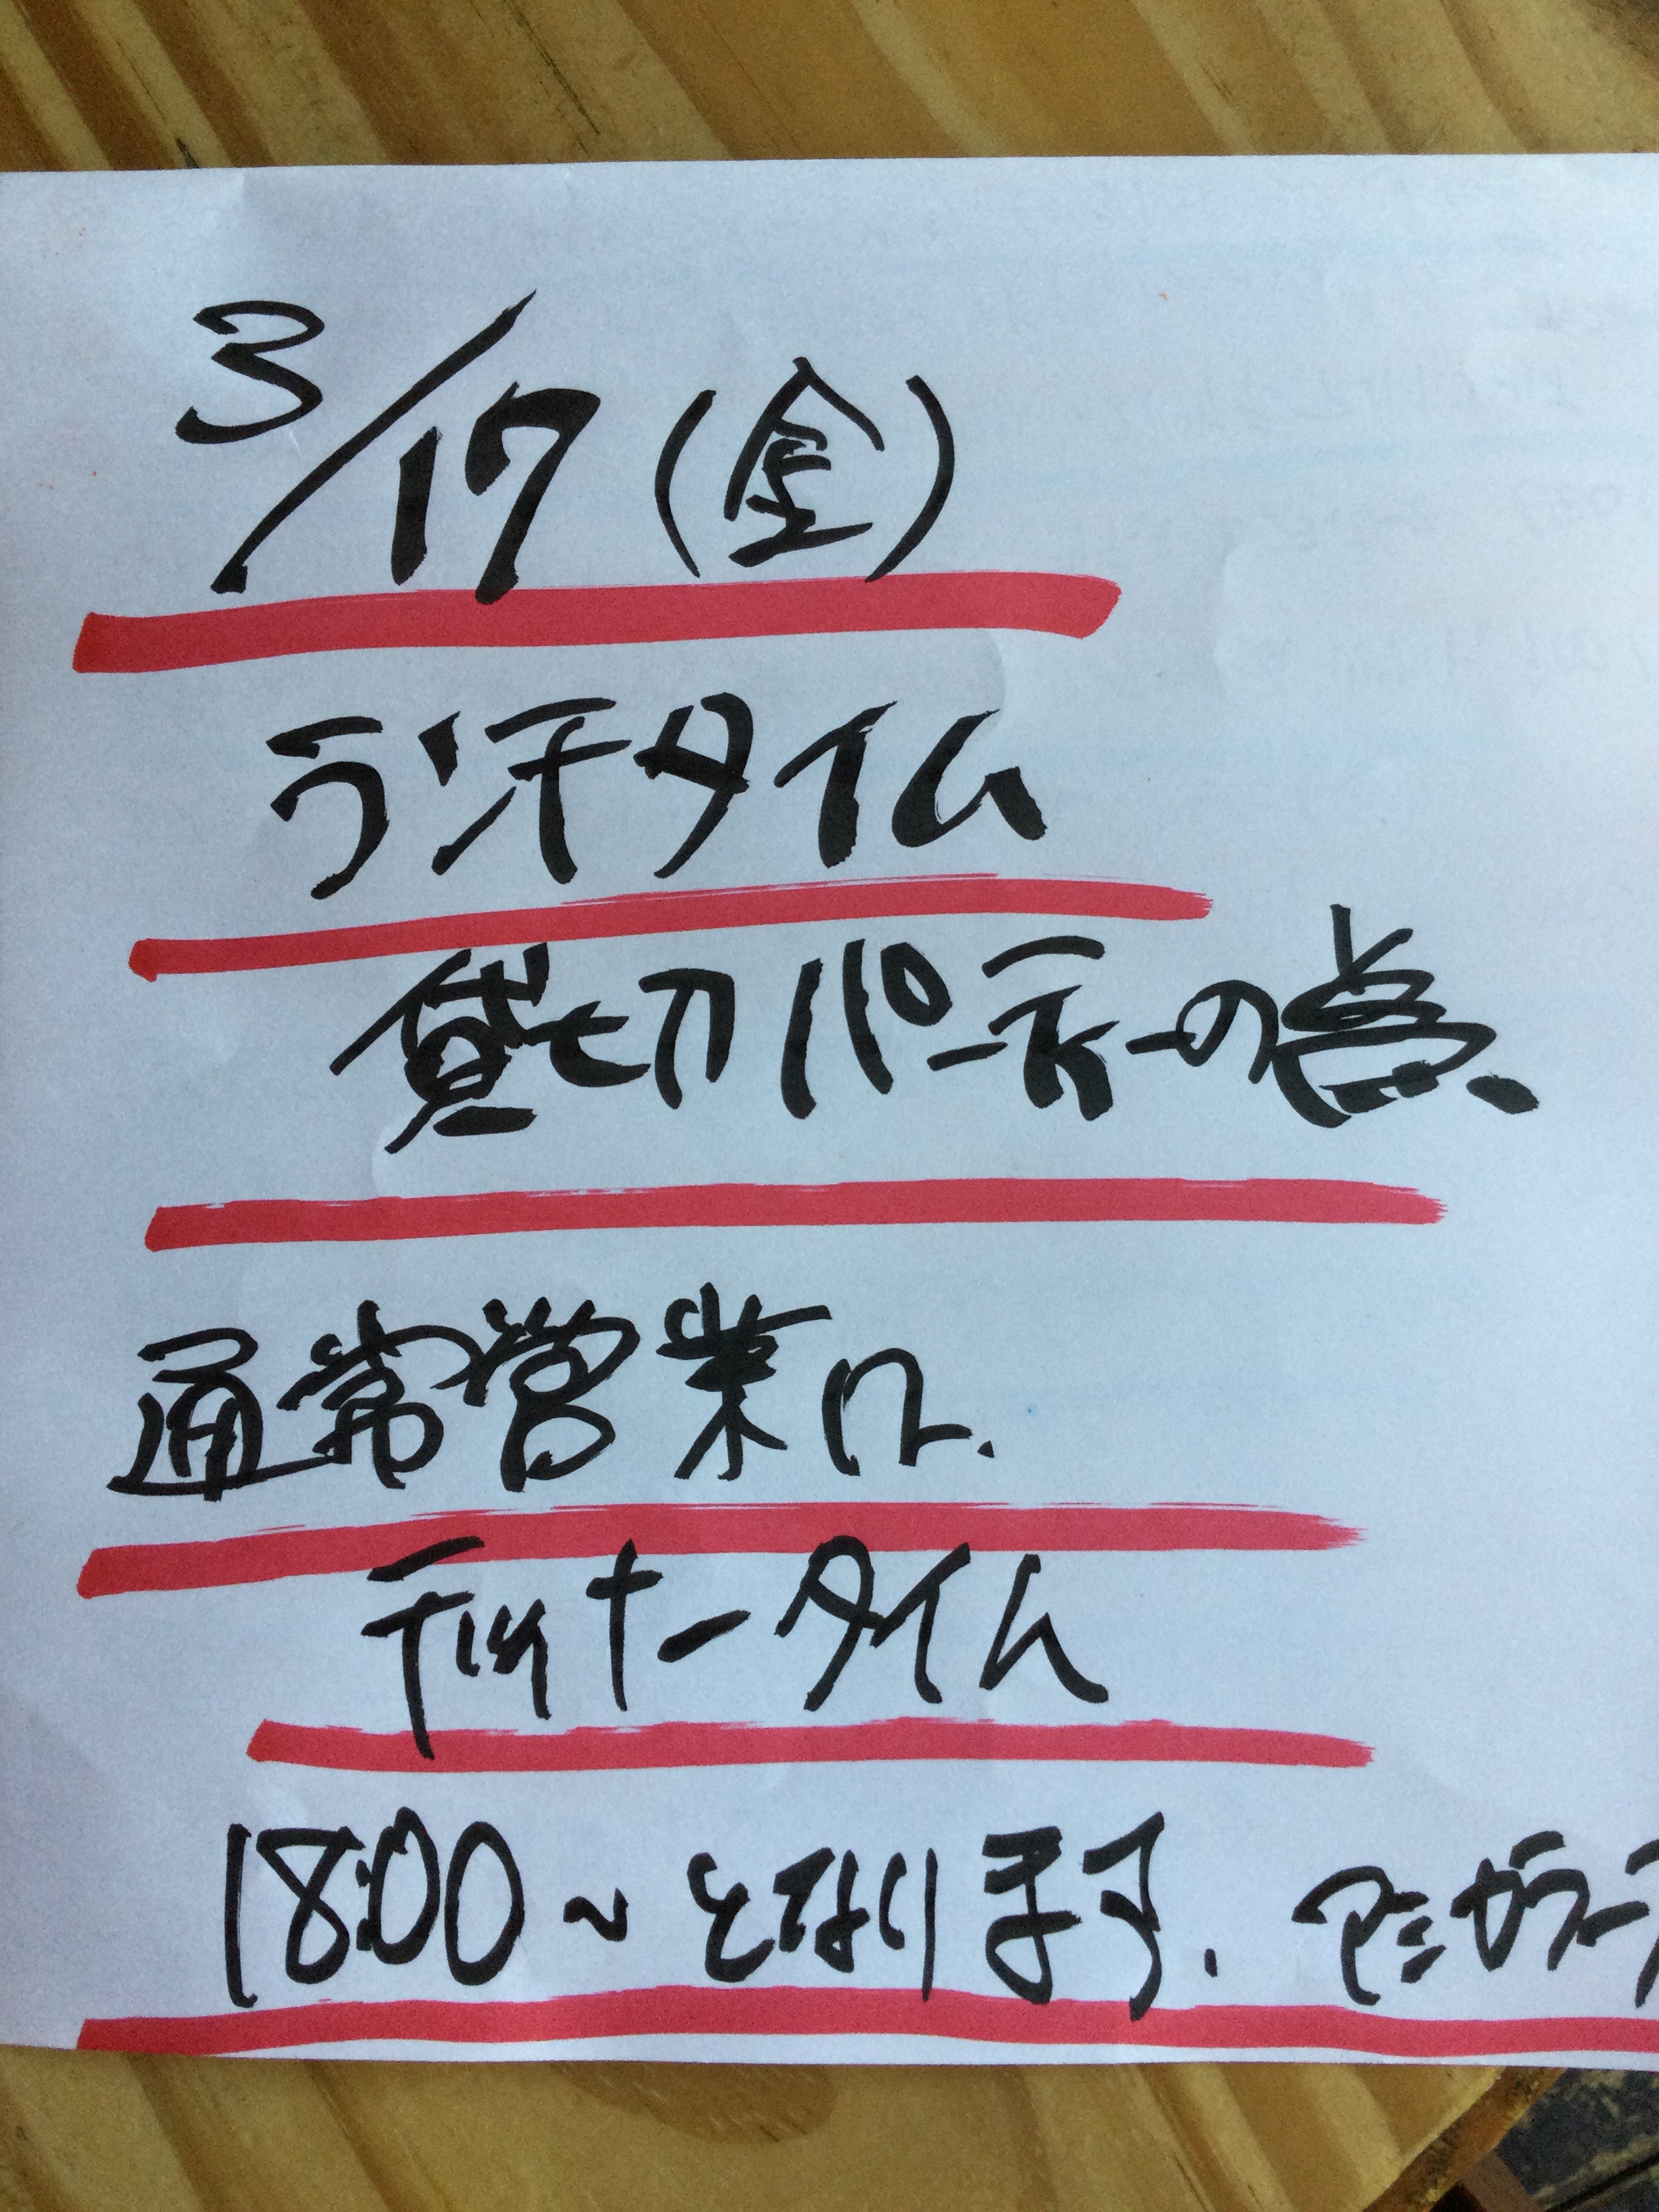 3/17(金)
ランチタイム
貸切パーティーの為、
通常営業は、
ディナータイム
18:00~となります。